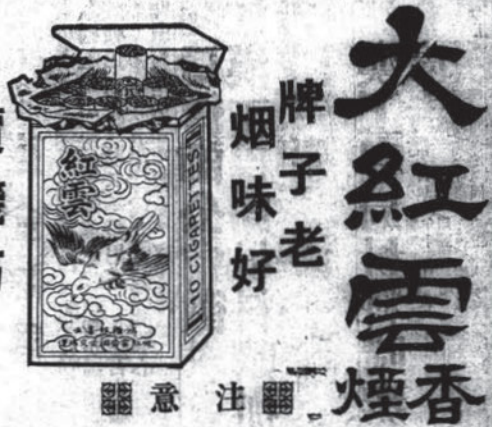 大紅雲
香煙
牌子老
烟味好
紅雲
10 CIGARETTES
注意